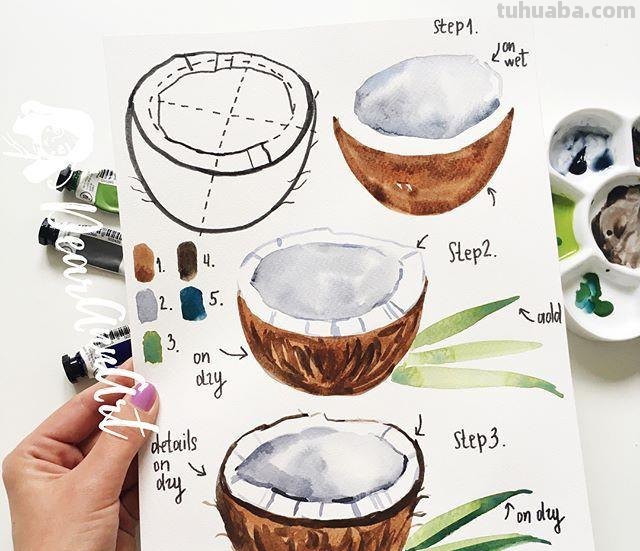 tuhuaba.com
Step1.
on
wet
1.
4.
2.
5.
3.
Step2.
add
on
dry
Step3.
details
on
dry
on dry